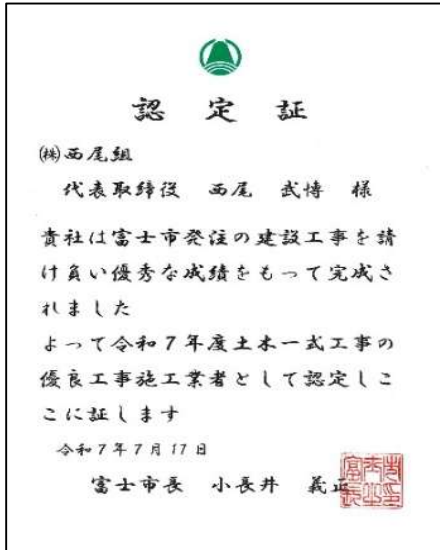 認定証
㈱西尾組
代表取締役 西尾 武博 様
貴社は富士市発注の建設工事を請
け負い優秀な成績をもって完成さ
れました
よって令和7年度土木一式工事の
優良工事施工業者として認定しこ
こに証します
令和7年7月17日
富士市長 小長井 義正